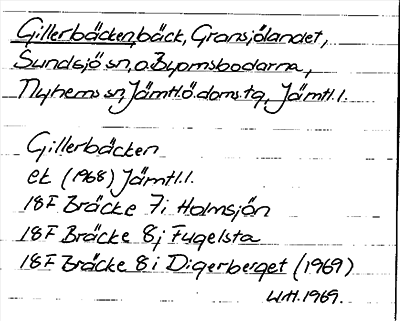 Gillerbäcken, bäck, Gransjölandet,
Sundsjö sn, o.
Nyhems sn, Jämtl.ö.doms.tg, Jämtl.l.
Gillerbäcken
ek (1968) Jämtl.l.
18F Bräcke 7i Holmsjön
18F Bräcke 8j Fugelsta
18F Bräcke 8i Digerberget (1969)
1969.